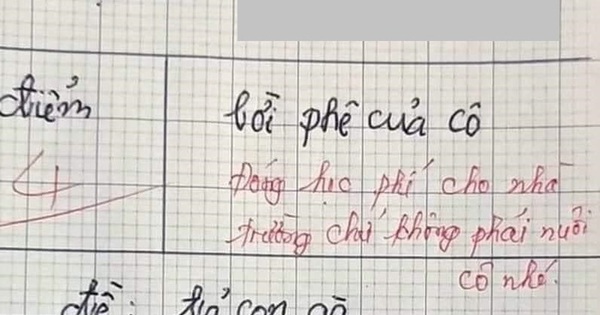 điểm
lời phê của cô
4
Đóng học phí cho nhà
trường chứ không phải nuôi
cô nhé.
đề: tả con gà